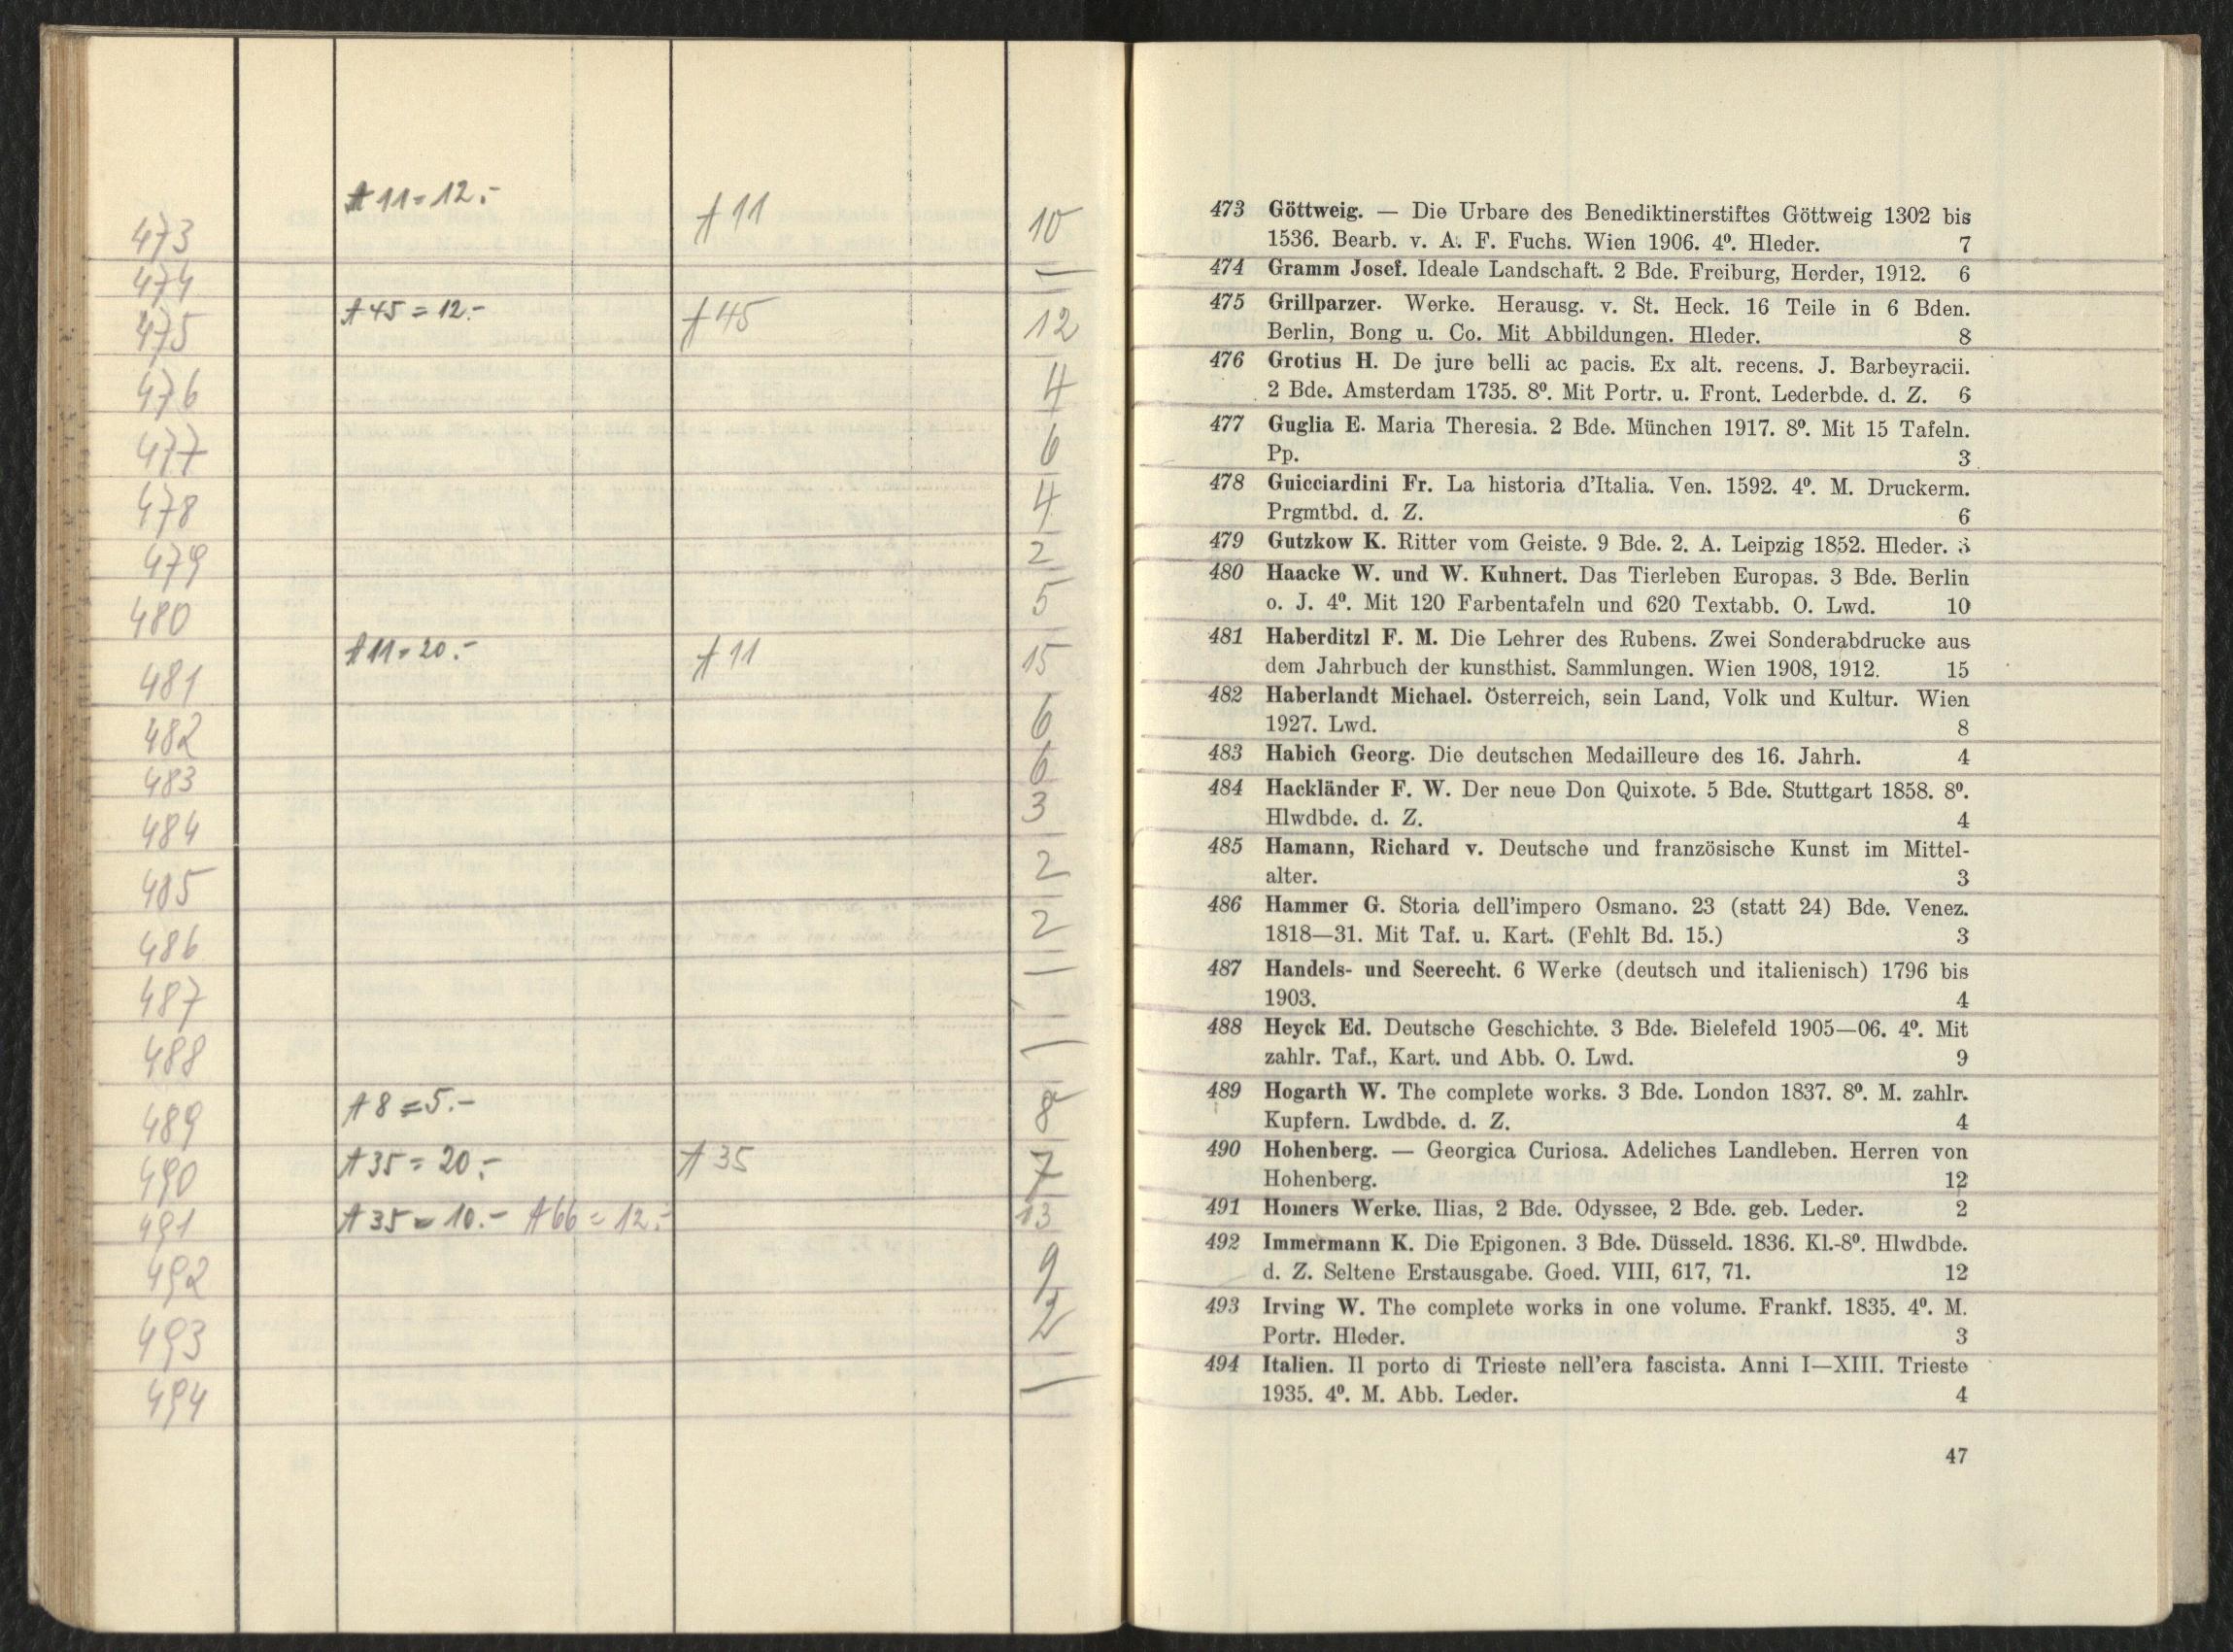 A 11 = 12.-
473 A 11 10
474 —
475 A 45 = 12.- A 45 12
476 4
477 6
478 4
479 2
480 5
481 A 11 = 20.- A 11 15
482 6
483 6
484 3
485 2
486 2
487 —
488 —
489 A 8 = 5.- 8
490 A 35 = 20.- A 35 7
491 A 35 = 10.- A 66 = 12.- 13
492 9
493 2
494 —
473 Göttweig. — Die Urbare des Benediktinerstiftes Göttweig 1302 bis
1536. Bearb. v. A. F. Fuchs. Wien 1906. 4⁰. Hleder. 7
474 Gramm Josef. Ideale Landschaft. 2 Bde. Freiburg, Herder, 1912. 6
475 Grillparzer. Werke. Herausg. v. St. Heck. 16 Teile in 6 Bden.
Berlin, Bong u. Co. Mit Abbildungen. Hleder. 8
476 Grotius H. De jure belli ac pacis. Ex alt. recens. J. Barbeyracii.
2 Bde. Amsterdam 1735. 8⁰. Mit Portr. u. Front. Lederbde. d. Z. 6
477 Guglia E. Maria Theresia. 2 Bde. München 1917. 8⁰. Mit 15 Tafeln.
Pp. 3
478 Guicciardini Fr. La historia d'Italia. Ven. 1592. 4⁰. M. Druckerm.
Prgmtbd. d. Z. 6
479 Gutzkow K. Ritter vom Geiste. 9 Bde. 2. A. Leipzig 1852. Hleder. 3
480 Haacke W. und W. Kuhnert. Das Tierleben Europas. 3 Bde. Berlin
o. J. 4⁰. Mit 120 Farbentafeln und 620 Textabb. O. Lwd. 10
481 Haberditzl F. M. Die Lehrer des Rubens. Zwei Sonderabdrucke aus
dem Jahrbuch der kunsthist. Sammlungen. Wien 1908, 1912. 15
482 Haberlandt Michael. Österreich, sein Land, Volk und Kultur. Wien
1927. Lwd. 8
483 Habich Georg. Die deutschen Medailleure des 16. Jahrh. 4
484 Hackländer F. W. Der neue Don Quixote. 5 Bde. Stuttgart 1858. 8⁰.
Hlwdbde. d. Z. 4
485 Hamann, Richard v. Deutsche und französische Kunst im Mittel-
alter. 3
486 Hammer G. Storia dell'impero Osmano. 23 (statt 24) Bde. Venez.
1818—31. Mit Taf. u. Kart. (Fehlt Bd. 15.) 3
487 Handels- und Seerecht. 6 Werke (deutsch und italienisch) 1796 bis
1903. 4
488 Heyck Ed. Deutsche Geschichte. 3 Bde. Bielefeld 1905—06. 4⁰. Mit
zahlr. Taf., Kart. und Abb. O. Lwd. 9
489 Hogarth W. The complete works. 3 Bde. London 1837. 8⁰. M. zahlr.
Kupfern. Lwdbde. d. Z. 4
490 Hohenberg. — Georgica Curiosa. Adeliches Landleben. Herren von
Hohenberg. 12
491 Homers Werke. Ilias, 2 Bde. Odyssee, 2 Bde. geb. Leder. 2
492 Immermann K. Die Epigonen. 3 Bde. Düsseld. 1836. Kl.-8⁰. Hlwdbde.
d. Z. Seltene Erstausgabe. Goed. VIII, 617, 71. 12
493 Irving W. The complete works in one volume. Frankf. 1835. 4⁰. M.
Portr. Hleder. 3
494 Italien. Il porto di Trieste nell'era fascista. Anni I—XIII. Trieste
1935. 4⁰. M. Abb. Leder. 4
47